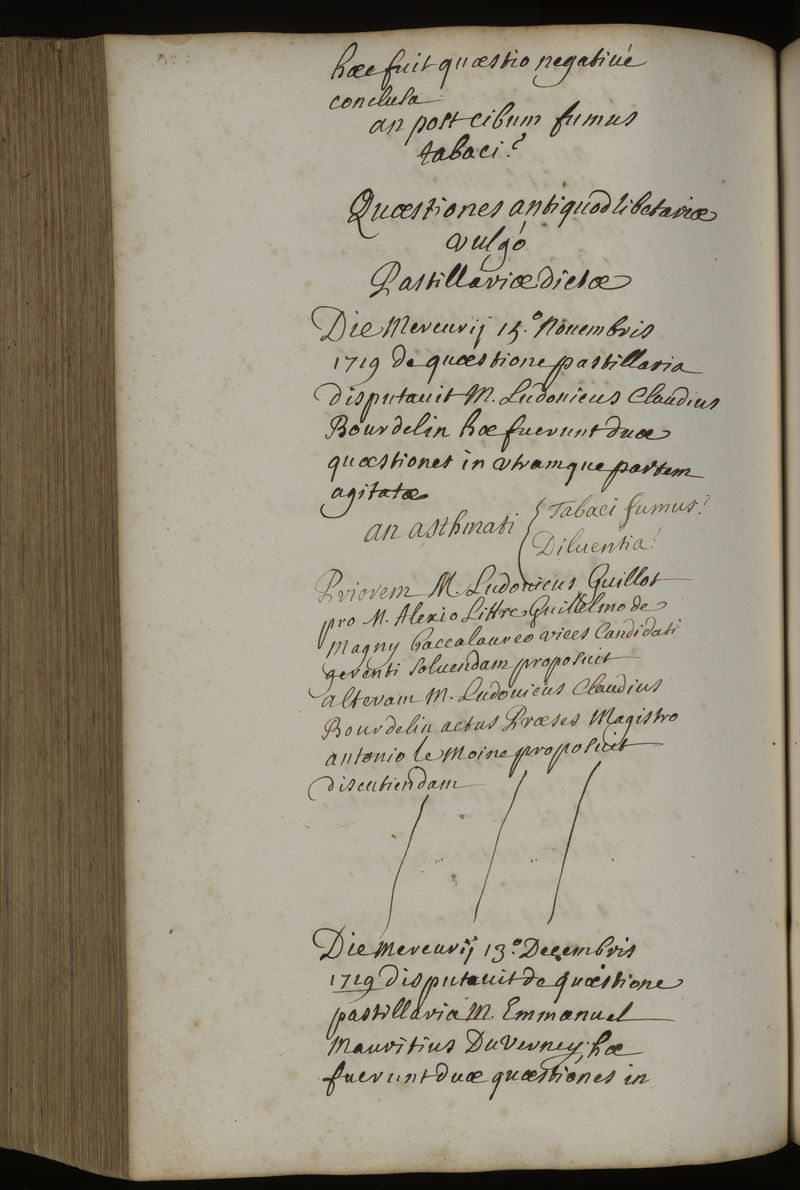 hæc fuit quæstio negativé
conclusa
an post cibum fumus
tabaci?
Quæstiones antiquodlibetariæ
vulgó
Pastillariæ dictæ
Die Mercurij 15.° Nouembris
1719 de quæstione pastillaria
disputauit M. Ludouicus Claudius
Bourdelin hæ fuerunt duæ
quæstiones in utramque partem
agitatæ
an asthmati { Tabaci fumus?
Diluentia?
Priorem M. Ludouicus Guillot
pro M. Alexio Littre Guillelmo de
Magny baccalaureo vices Candidati
gerenti soluendam proposuit
alteram M. Ludouicus Claudius
Bourdelin actus Præses Magistro
antonio le Moine proposuit
discutiendam
Die Mercurij 13.° Decembris
1719 disputauit de quæstione
pastillaria M. Emmanuel
Mauritius DuVerney, hæ
fuerunt duæ quæstiones in